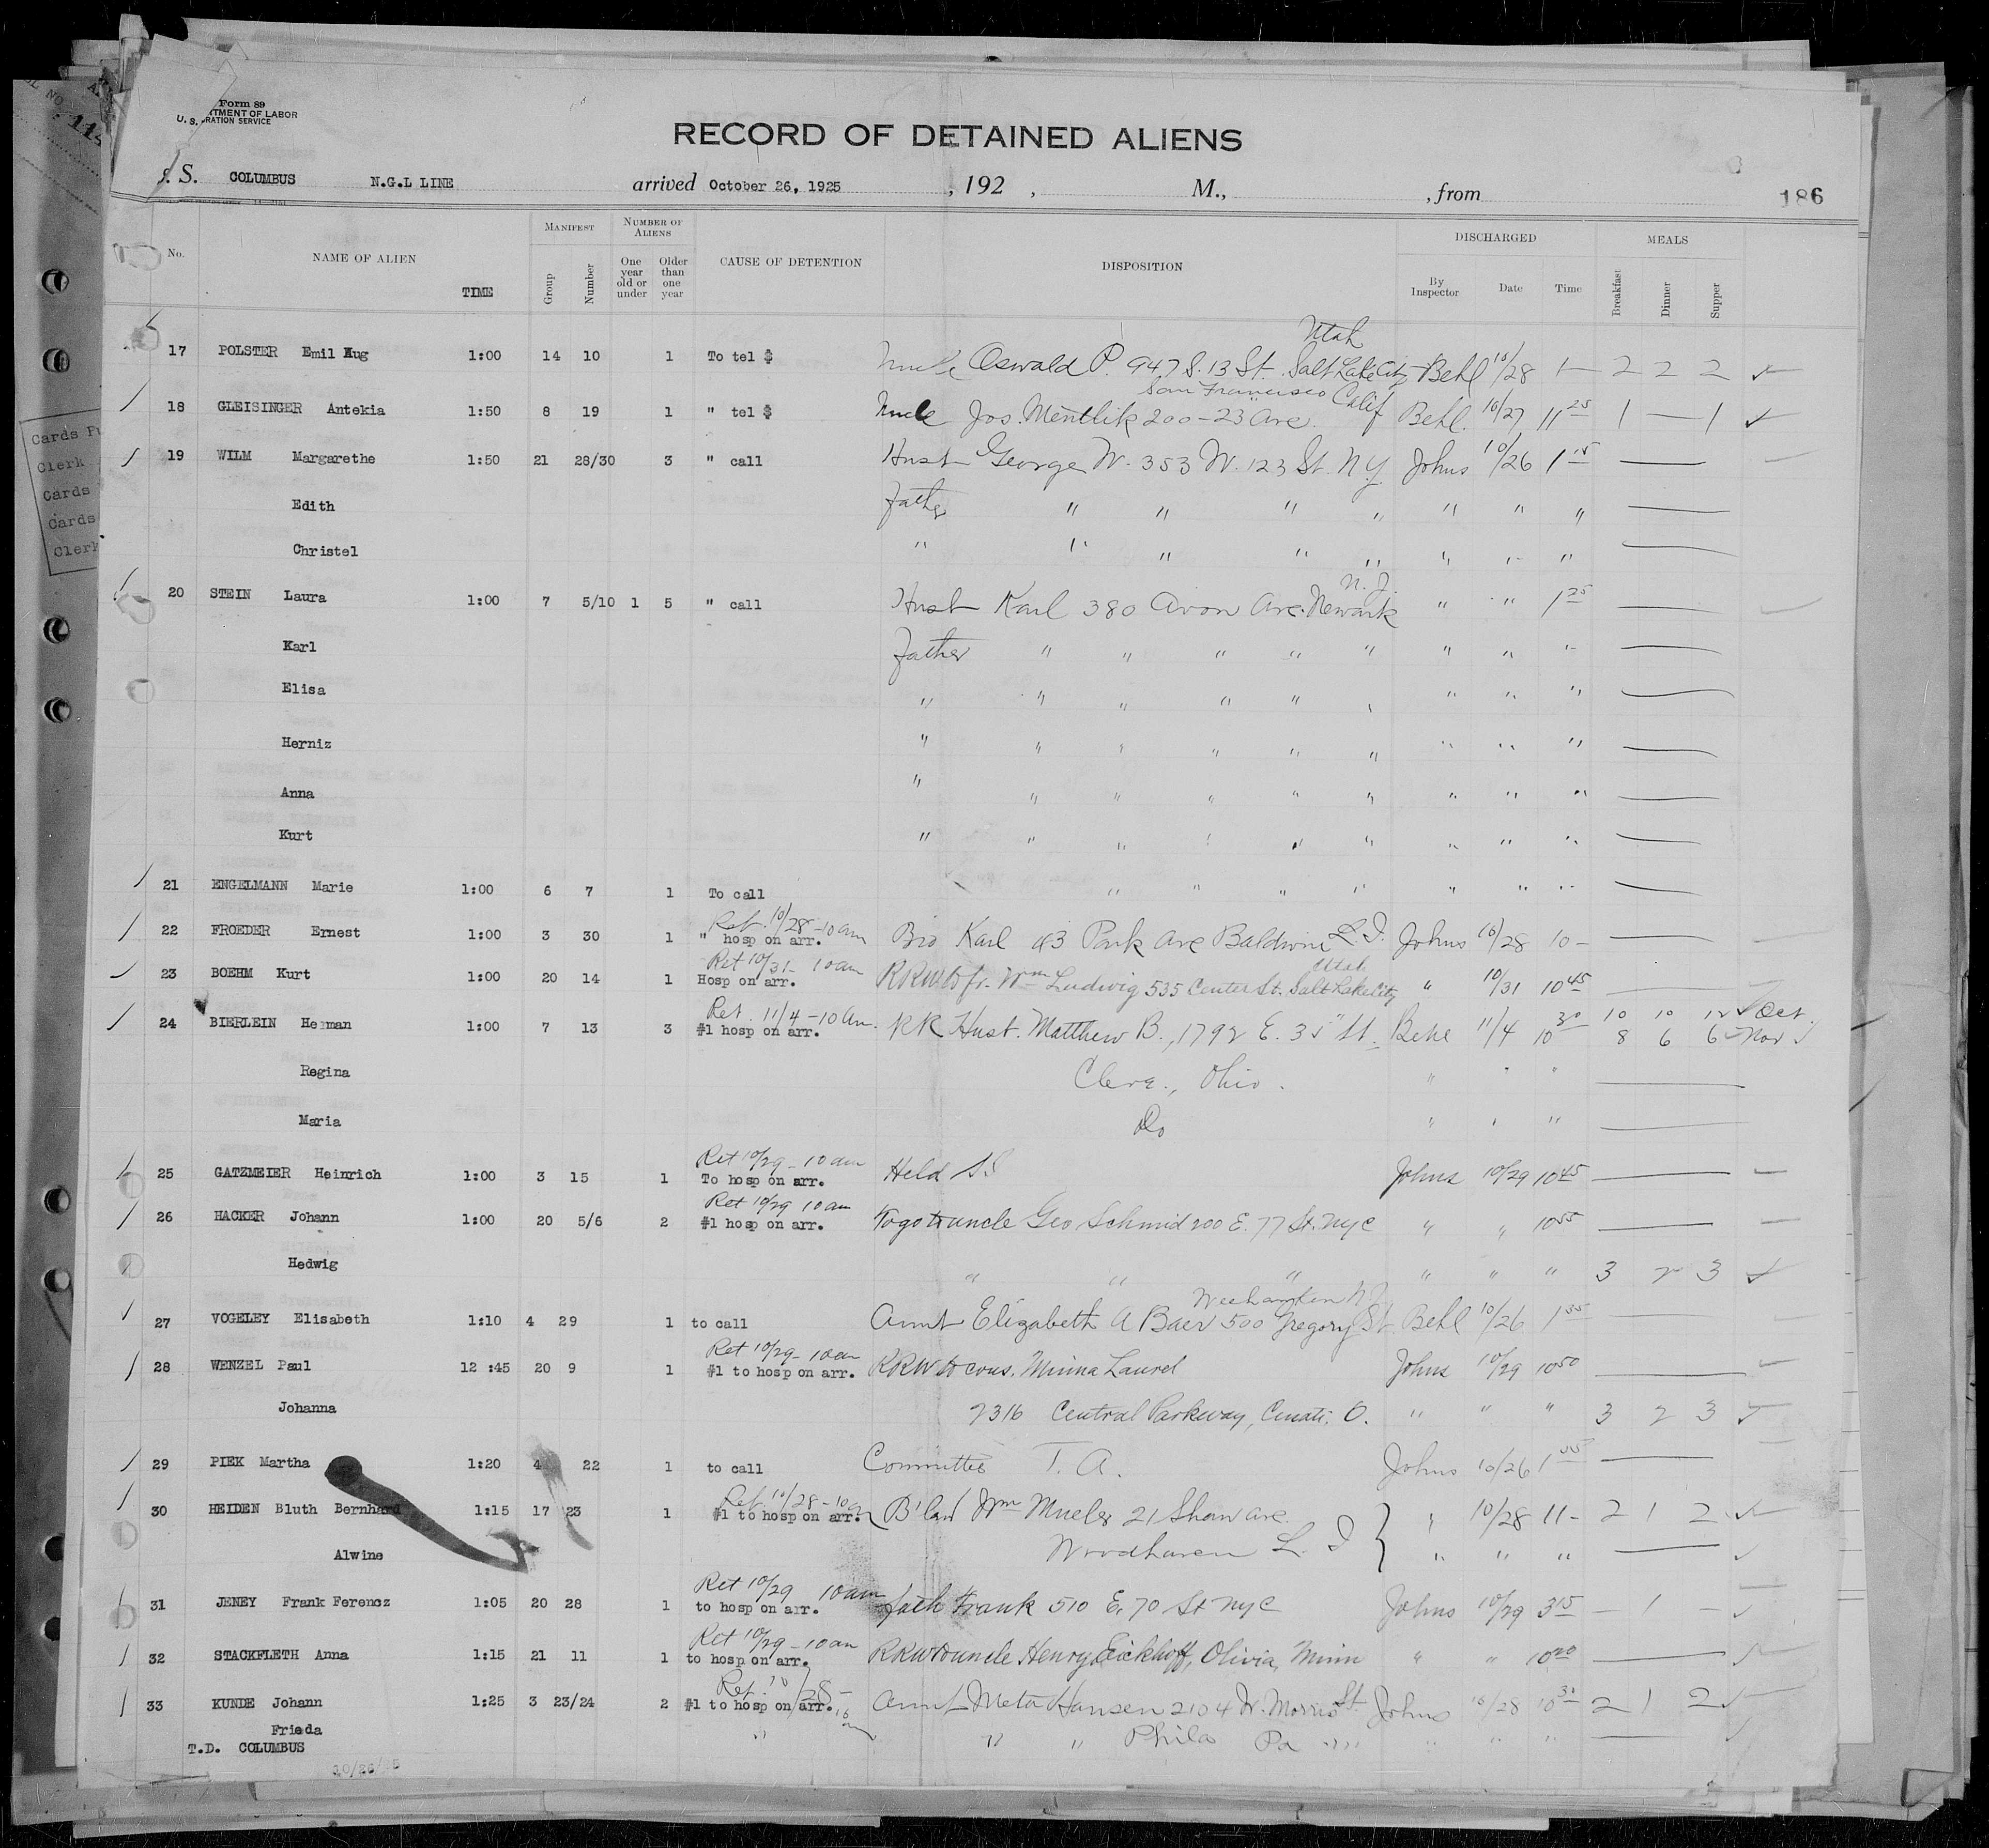 Form 89
U. S. RATION SERVICE
TMENT OF LABOR
RECORD OF DETAINED ALIENS
S. S. COLUMBUS N.G.L LINE arrived October 26, 1925 , 192 , M., , from 186
No. NAME OF ALIEN TIME MANIFEST Group Number NUMBER OF ALIENS One year old or under Older than one year CAUSE OF DETENTION DISPOSITION DISCHARGED By Inspector Date Time MEALS Breakfast Dinner Supper
Utah
17 POLSTER Emil Aug 1:00 14 10 1 To tel $ Uncle Oswald P. 947 S. 13 St. Salt Lake City Behl 10/28 1— 2 2 2
San Francisco Calif
18 GLEISINGER Antekia 1:50 8 19 1 " tel $ Uncle Jos. Mentlik 200 - 23 Ave. Behl. 10/27 11 25 1 — 1
19 WILM Margarethe 1:50 21 28/30 3 " call Husb George W. 353 W. 123 St. N.Y. Johns 10/26 1 15 —
Edith Father " " " " " " " —
Christel " " " " " " " " —
N. J.
20 STEIN Laura 1:00 7 5/10 1 5 " call Husb Karl 380 Avon Ave. Newark " " 1 25 —
Karl Father " " " " " " " " —
Elisa " " " " " " " " " —
Herniz " " " " " " " " " —
Anna " " " " " " " " " —
Kurt " " " " " " " " " —
21 ENGELMANN Marie 1:00 6 7 1 To call " " " " " " " —
Ret. 10/28 - 10 am
22 FROEDER Ernest 1:00 3 30 1 " hosp on arr. Bro Karl 43 Park Ave Baldwin L.I. Johns 10/28 10 — —
Ret 10/31 - 10 am Utah
23 BOEHM Kurt 1:00 20 14 1 Hosp on arr. RRW to fr. Wm Ludwig 535 Center St. Salt Lake City " 10/31 10 45 —
Ret. 11/4 - 10 am. 10 10 12 Oct.
24 BIERLEIN Herman 1:00 7 13 3 #1 hosp on arr. RR Husb. Matthew B., 1792 E. 35" St. Behl 11/4 10 30 8 6 6 Nov
Regina Cleve., Ohio. " " " —
Maria Do " " " —
Ret 10/29 - 10 am
25 GATZMEIER Heinrich 1:00 3 15 1 To hosp on arr. Held SI Johns 10/29 10 45 —
Ret 10/29 10 am
26 HACKER Johann 1:00 20 5/6 2 #1 hosp on arr. To go to uncle Geo Schmid 200 E. 77 St. NYC " " 10 55 —
Hedwig " " " " " " 3 2 3
Weehawken N.J.
27 VOGELEY Elisabeth 1:10 4 29 1 to call Aunt Elizabeth A Baer 500 Gregory St Behl 10/26 1 35 —
Ret 10/29 - 10 am
28 WENZEL Paul 12 :45 20 9 1 #1 to hosp on arr. RRW to cous. Minna Laurel Johns 10/29 10 50 —
Johanna 2316 Central Parkway, Cinati. O. " " " 3 2 3
29 PIEK Martha 1:20 4 22 1 to call Committee T. A. Johns 10/26 1 55 —
Ret. 10/28 - 10
30 HEIDEN Bluth Bernhard 1:15 17 23 1 #1 to hosp on arr. B'law Wm Mueler 21 Shaw Ave. " 10/28 11 - 2 1 2
Alwine Woodhaven L. I " " " —
Ret 10/29 10 am
31 JENEY Frank Ferencz 1:05 20 28 1 to hosp on arr. Fath Frank 510 E. 70 St NYC Johns 10/29 3 15 — 1 —
Ret 10/29 - 10 am
32 STACKFLETH Anna 1:15 21 11 1 to hosp on arr. RRW to uncle Henry Eickhoff, Olivia, Minn " " 10 20 —
Ret. 10/28 - 10 am
33 KUNDE Johann 1:25 3 23/24 2 #1 to hosp on arr. Aunt Meta Hansen 2104 W. Morris St. Johns 10/28 10 31 2 1 2
Frieda " " " Phila Pa " " " " —
T.D. COLUMBUS
10/26/25
Cards
Clerk
Cards
Cards
Clerk